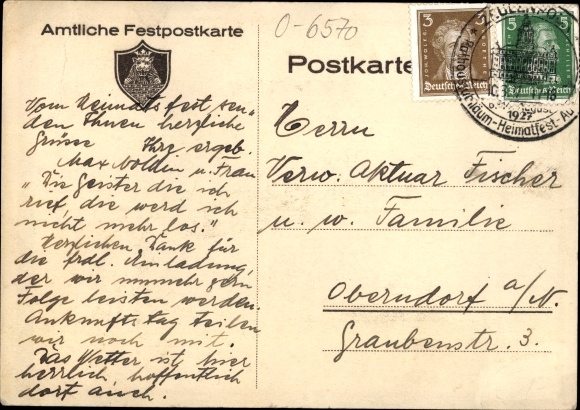 O-6570
Amtliche Festpostkarte
Postkarte
3
JOH. WOLFG. V. GOETHE
Deutsches Reich
5
Deutsches Reich
1927
Rathaus-Jubiläum-Heimatfest-Au
Vom Heimatsfest sen-
den Ihnen herzliche
Grüsse Ihre ergeb.
Max Nolden u. Frau
"Die Geister die ich
rief, die werd ich
nicht mehr los."
Herzlichen Dank für
die frdl. Einladung,
der wir nunmehr gern
Folge leisten werden.
Ankunftstag teilen
wir noch mit.
Das Wetter ist hier
herrlich, hoffentlich
dort auch.
Herrn
Verw. Aktuar Fischer
u. w. Familie
Oberndorf a/N.
Graubenstr. 3.